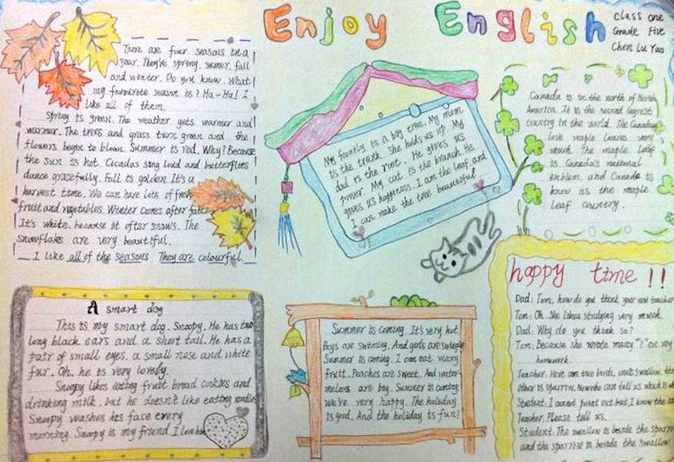 Enjoy English
Class one
Grade Five
Chen Lu Yao
There are four seasons in a
year. They're spring, summer, fall
and winter. Do you know. What
my favourite season is? Ha-Ha! I
like all of them.
Spring is green. The weather gets warmer and
warmer. The trees and grass turns green and the
flowers begin to bloom. Summer is red. Why? Because
the sun is hot. Cicadas sing loud and butterflies
dance gracefully. Fall is golden. It's a
harvest time. We can have lots of fresh
fruit and vegetables. Winter comes after fall
It's white. because it often snows. The
snowflakes are very beautiful.
I like all of the seasons They are colourful.
My family is a big tree. My mum
is the trunk. She holds us up. My
dad is the root. He gives us
power. My cat is the branch. He
gives us happiness. I am the leaf and
I can make the tree beautiful.
Canada is in the north of North
America. It is the second largest
country in the world. The Canadian
love maple leaves very
much. The maple leaf
is Canada's national
emblem, and Canada is
know as the maple
leaf country.
A smart dog
This is my smart dog. Snoopy. He has two
long black ears and a short tail. He has a
pair of small eyes. a small nose and white
fur. Oh, he is very lovely.
Snoopy likes eating fruit bread cookies and
drinking milk. but he doesn't like eating noodles
Snoopy washes his face every
morning. Snoopy is my friend. I love him
Summer is coming. It's very hot.
Boys are swiming. And girls are
Summer is coming. I can eat many
fruit. Peaches are sweet. And water-
melons are big. Summer is coming.
We're very happy. The holiday
is good. And the holiday is fun!
happy time!!
Dad: Tom, how do you think your new teacher
Tom: Oh. She likes studying very much.
Dad: Why do you think so?
Tom: Because she wrote many "?" on my
homework.
Teacher: Here are two birds, one's swallow. the
other is sparrow. Now who can tell us which is wh
Student: I cannot point out but I know the an
Teacher: Please tell us.
Student: The swallow is beside the sparr
and the sparrow is beside the swallow.